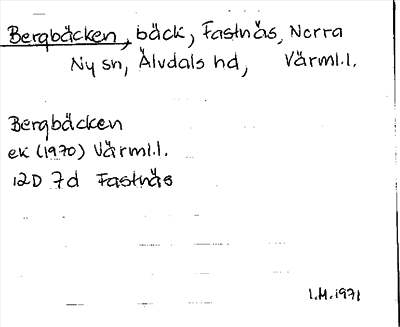 Bergbäcken, bäck, Fastnäs, Norra
Ny sn, Älvdals hd, Värml.l.
Bergbäcken
ek (1970) Värml.l.
12D 7d Fastnäs
I.M.1971